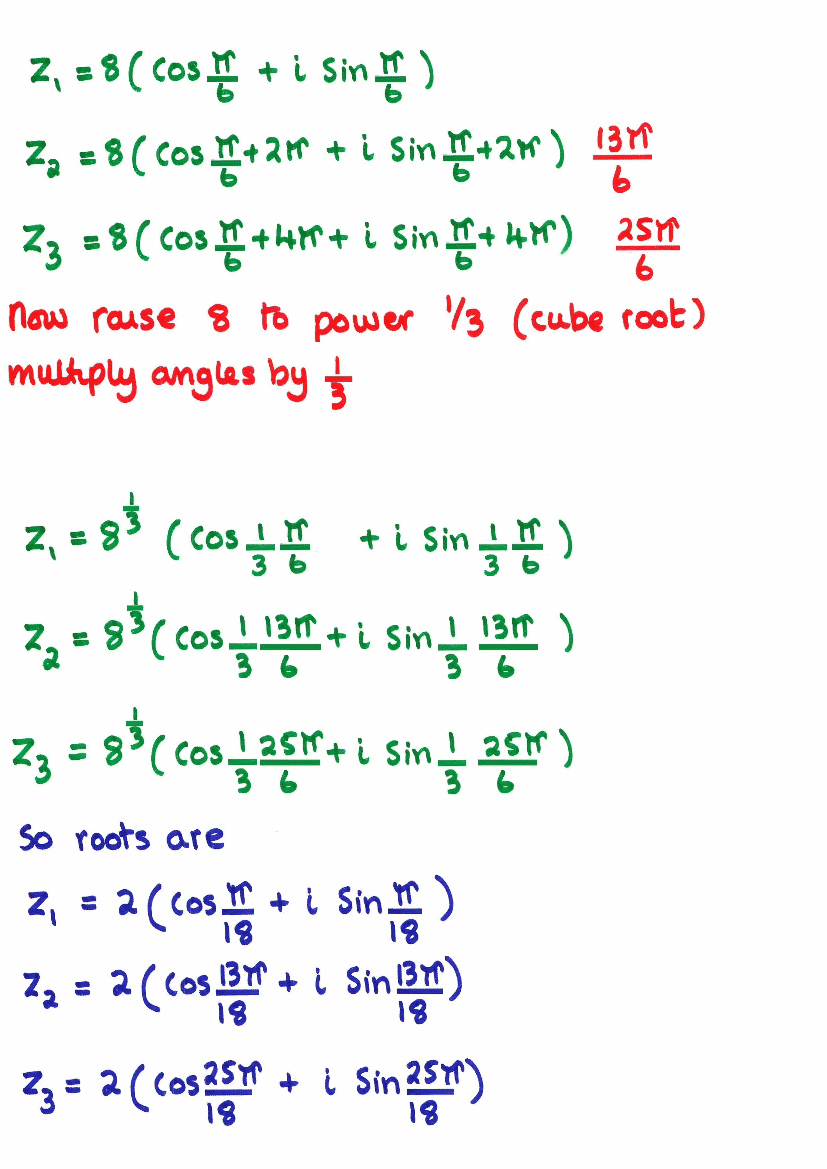 z₁ = 8 ( cos π/6 + i sin π/6 )
z₂ = 8 ( cos π/6 + 2π + i sin π/6 + 2π ) 13π/6
z₃ = 8 ( cos π/6 + 4π + i sin π/6 + 4π ) 25π/6
Now raise 8 to power 1/3 (cube root)
multiply angles by 1/3
z₁ = 8^(1/3) ( cos 1/3 π/6 + i sin 1/3 π/6 )
z₂ = 8^(1/3) ( cos 1/3 13π/6 + i sin 1/3 13π/6 )
z₃ = 8^(1/3) ( cos 1/3 25π/6 + i sin 1/3 25π/6 )
So roots are
z₁ = 2 ( cos π/18 + i sin π/18 )
z₂ = 2 ( cos 13π/18 + i sin 13π/18 )
z₃ = 2 ( cos 25π/18 + i sin 25π/18 )